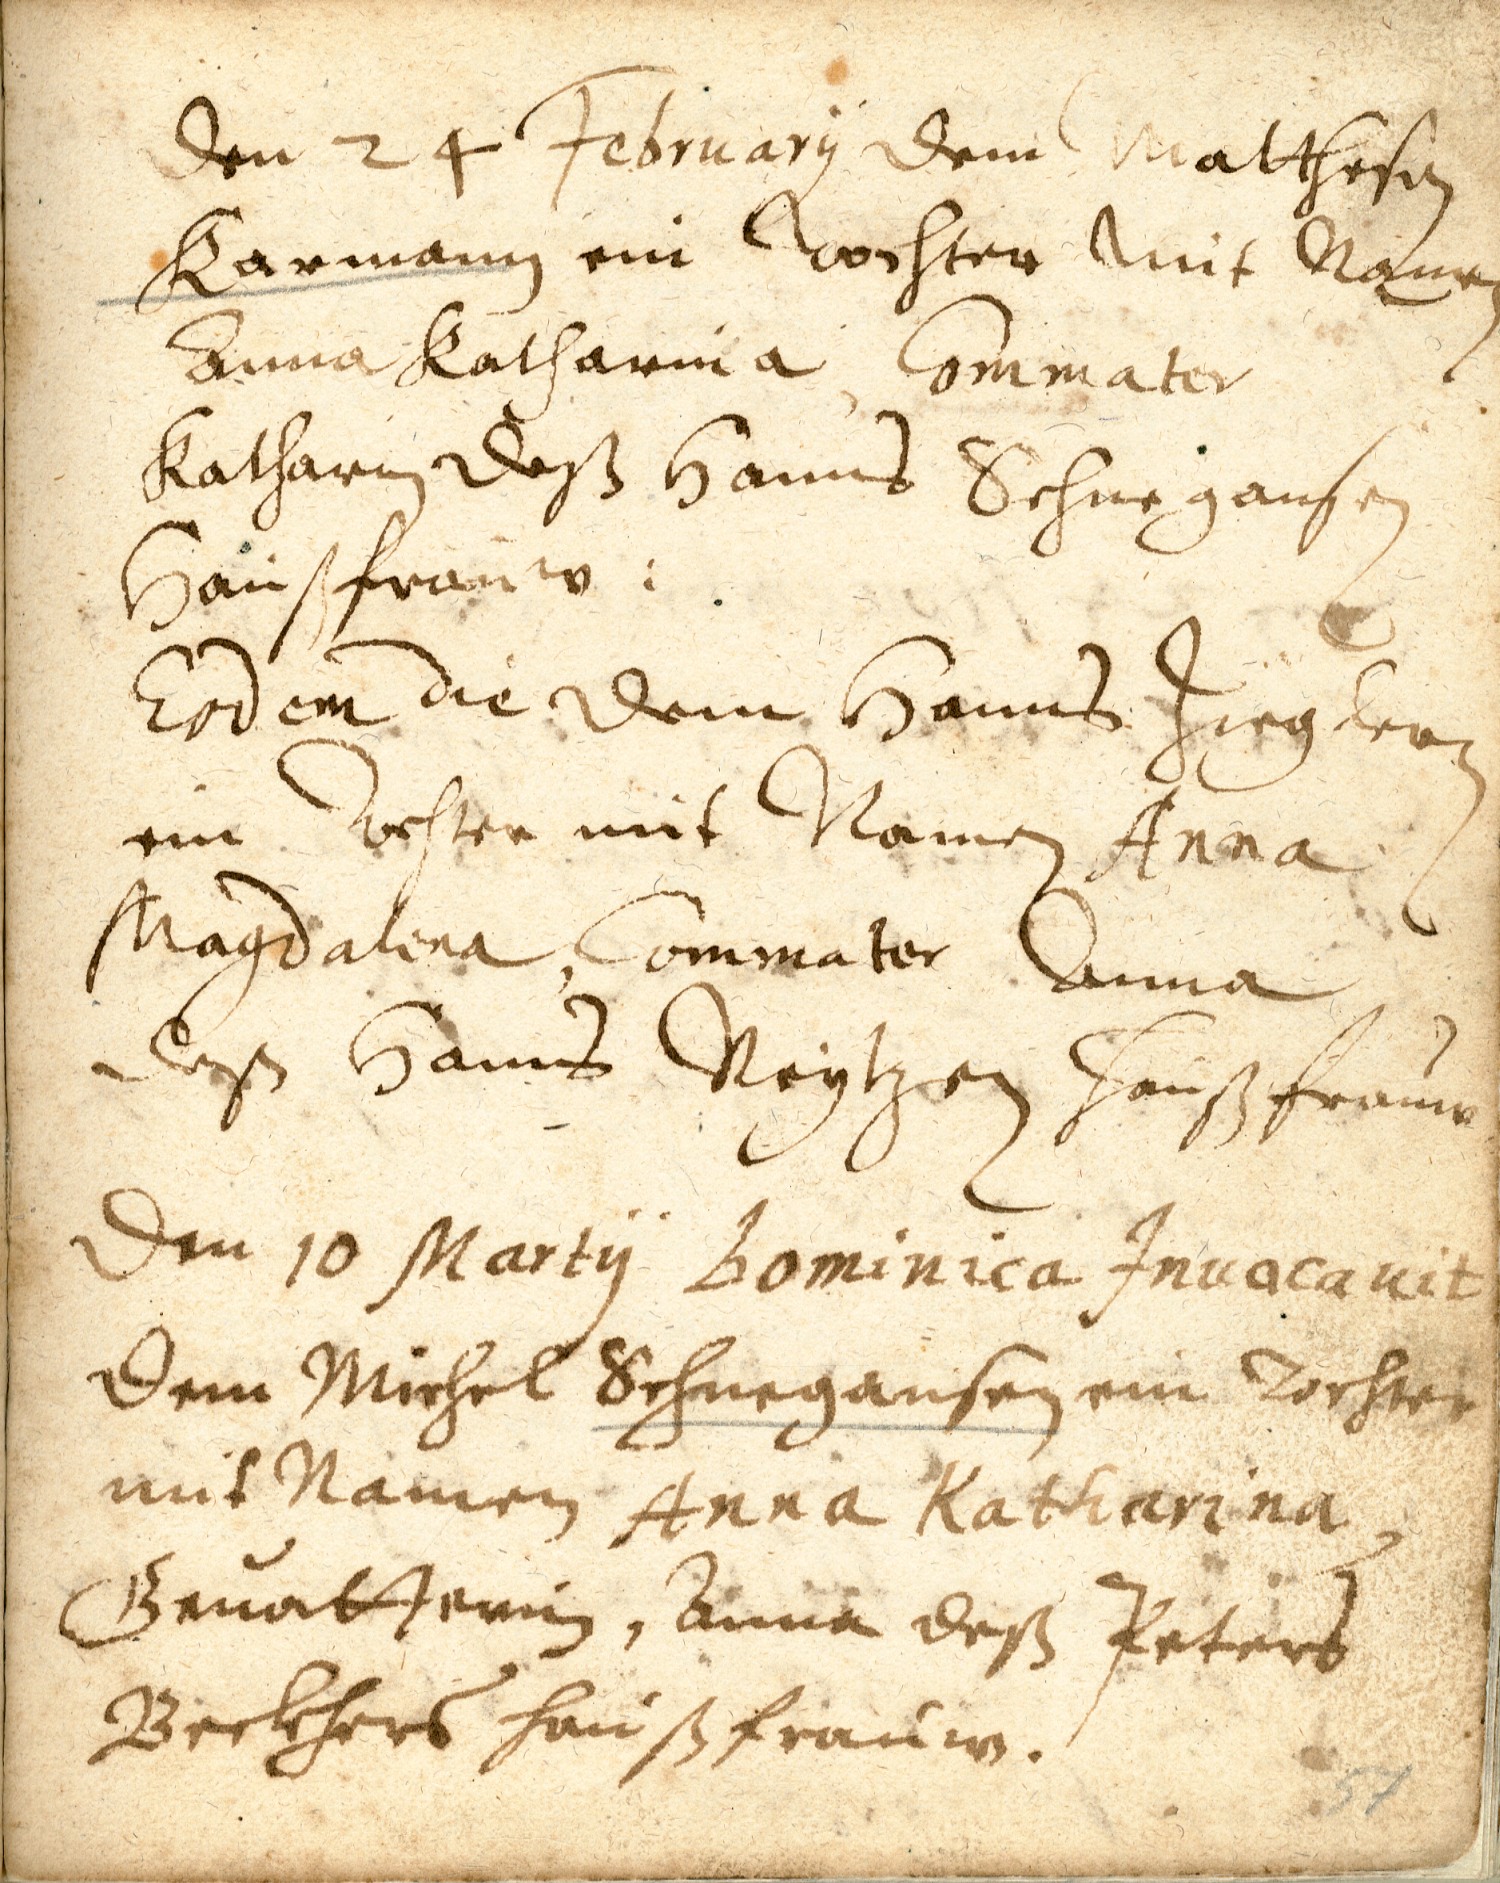 Den 24 February dem Matthesen
Karmann ein Tochter mit Namen
Anna Katharina, Commater
Katharin deß Hanns Schnegansen
Haußfrauw:
Eodem die dem Hanns Zieglern
ein Tochter mit Namen Anna
Magdalena, Commater Anna
deß Hanns Neytzen haußfrauw
Den 10 Martij Dominica Inuocauit
dem Michel Schnegansen ein Tochter
mit Namen Anna Katharina,
Geuatterin, Anna deß Peters
Beckhers haußfrauw.
57